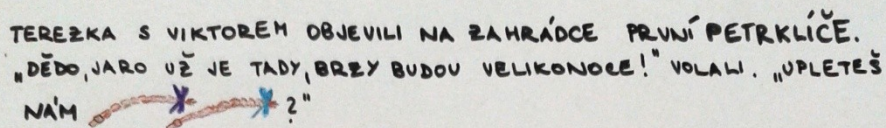 TEREZKA S VIKTOREM OBJEVILI NA ZAHRÁDCE PRVNÍ PETRKLÍČE.
„DĚDO, JARO UŽ JE TADY, BRZY BUDOU VELIKONOCE!" VOLALI. „UPLETEŠ
NÁM ?"